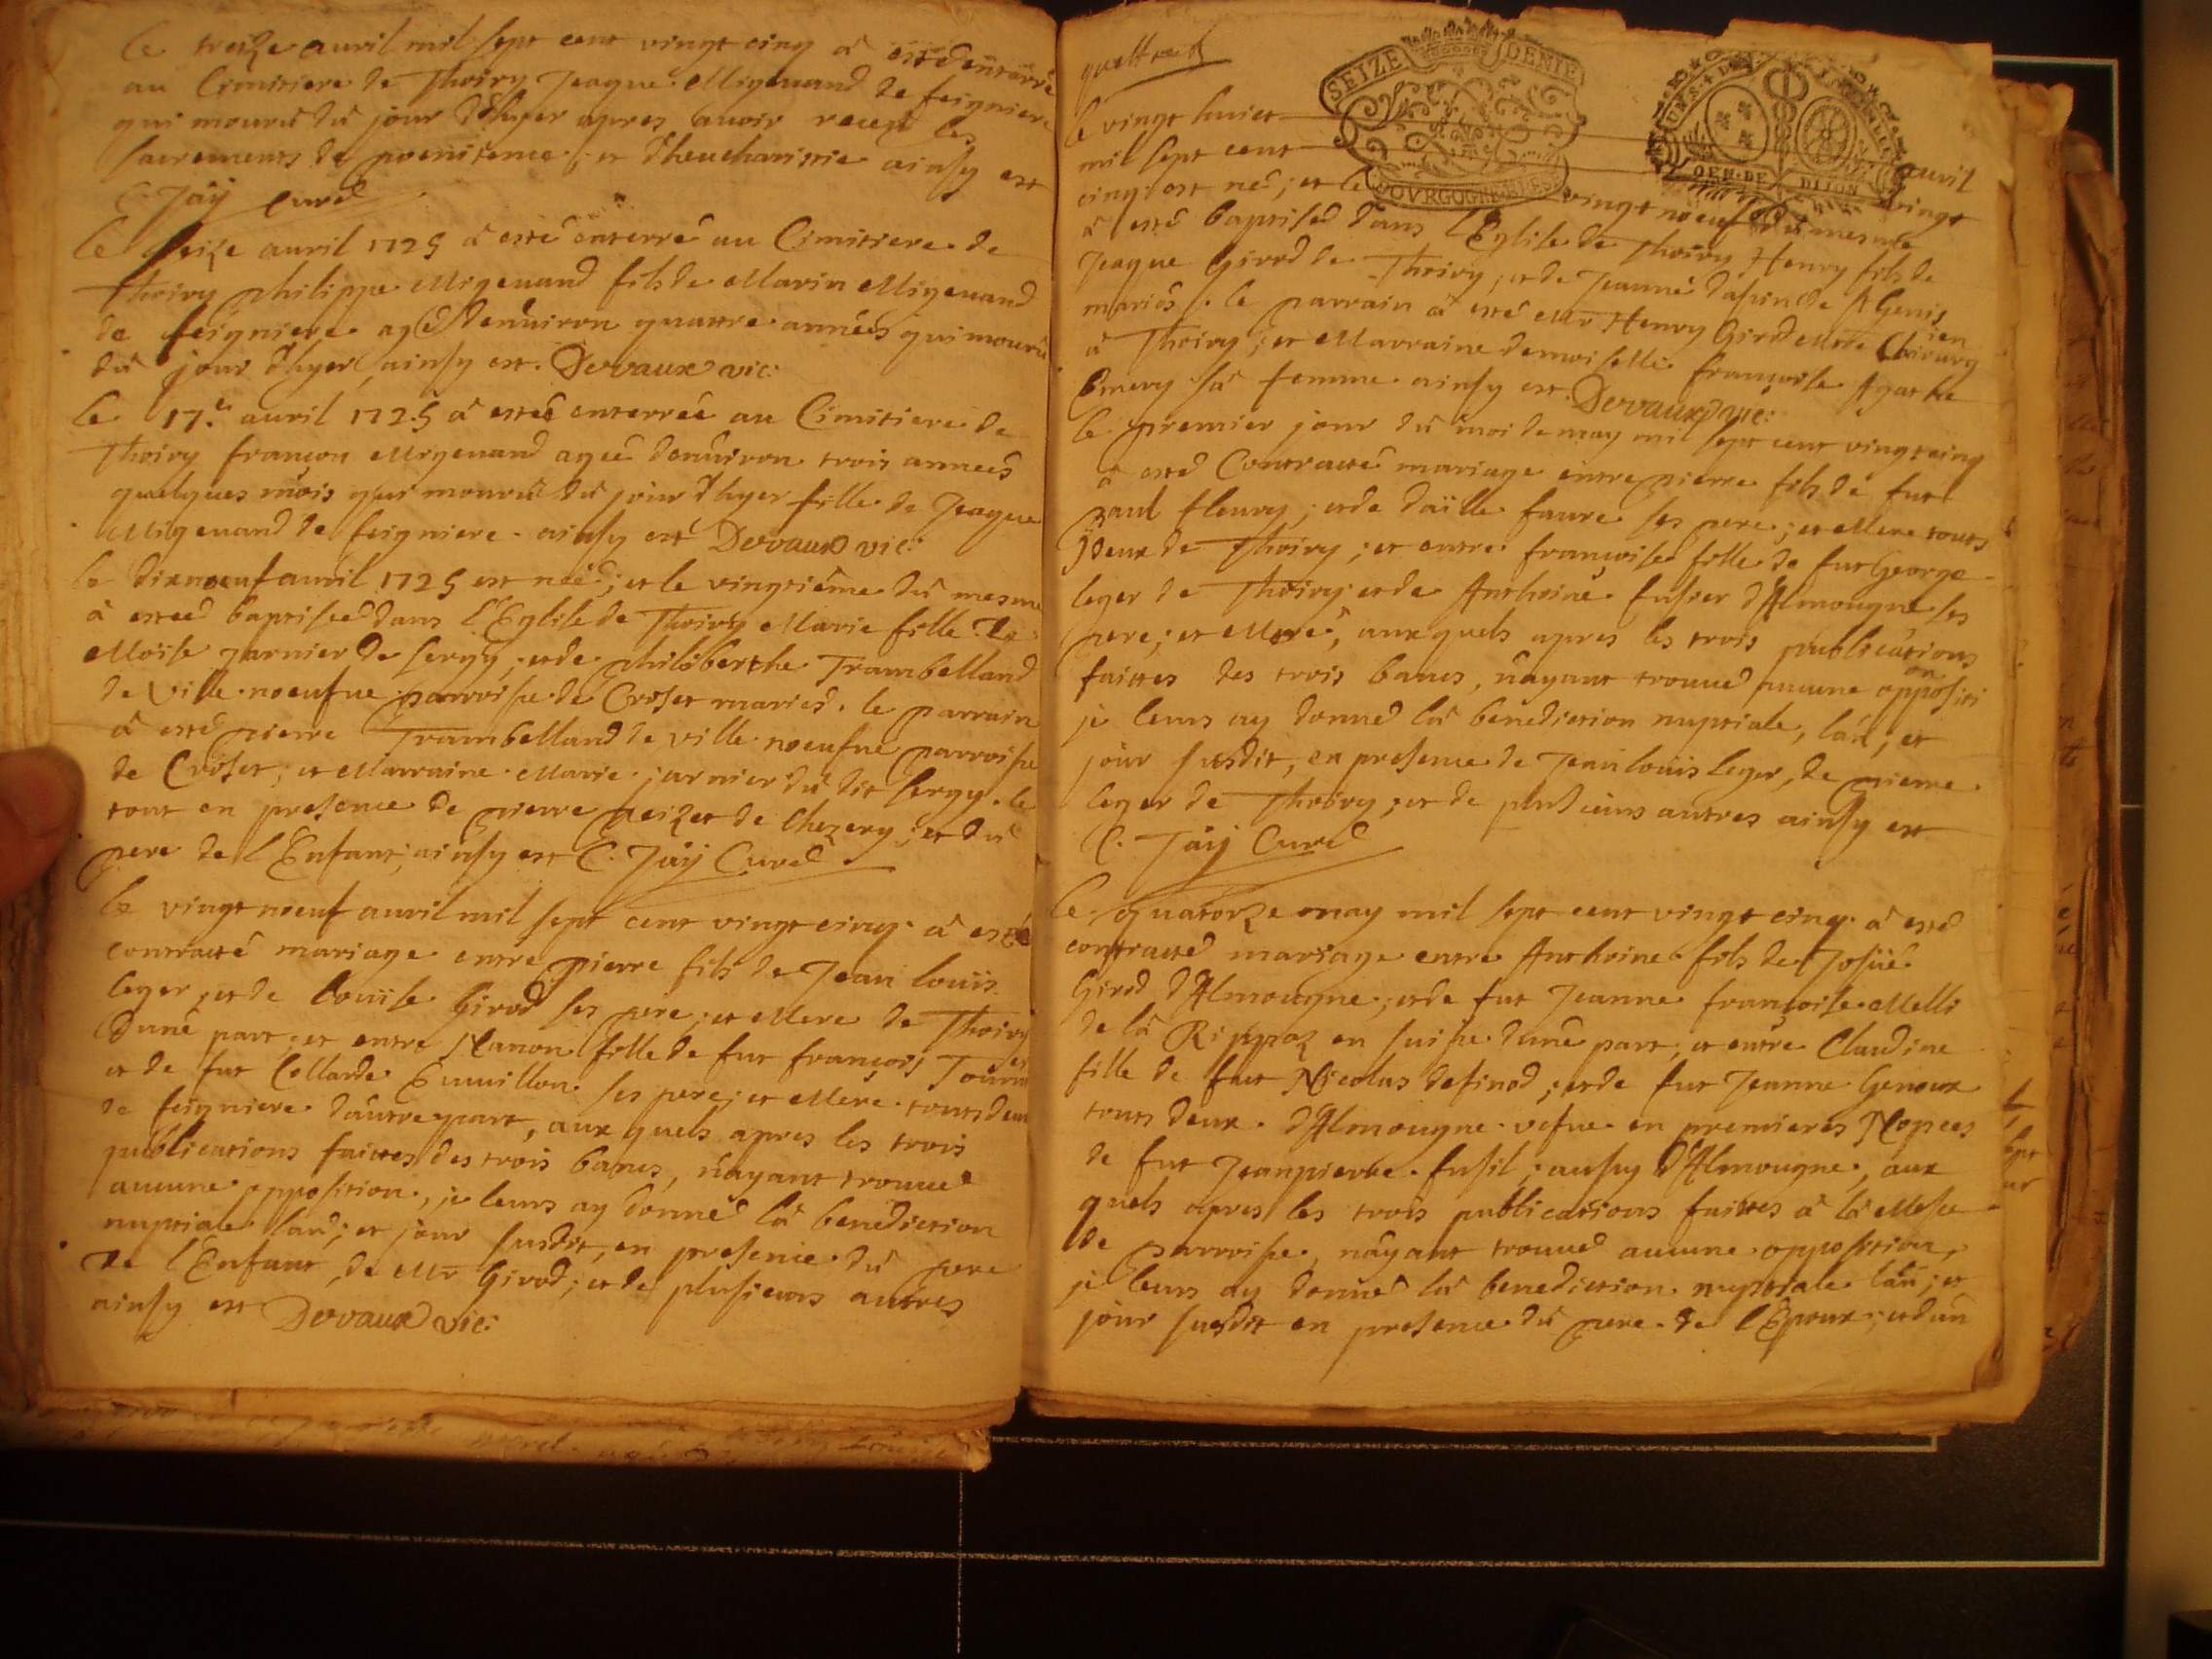 le treize auril mil sept cent vingt cinq â esté enterré
au Cimitiere de Thoiry Jaque Migeuand de feigniere
qui mourû dû jour d'hyer apres auoir receu les
sacrements de poenitence, et d'heucharistie ainsy est
C. Jaÿ curé
le seize auril 1725 â esté enterré au Cimitiere de
Thoiry philippe Migeuand fils de Marin Migeuand
de feigniere agé denuiron quattre années qui mourû
dû jour d'hyer, ainsy est. Dervaux vic:
le 17.e auril 1725 â estéé enterréé au Cimitiere de
Thoiry françon Migeuand agéé denuiron trois années
quelques mois qui mourû dû jour d'hyer fille de Jaque
Migeuand de feigniere. ainsy est Dervaux vic:
le dixnoeuf auril 1725 est néé; et le vingtiéme dû mesme
â estéé baptiséé dans l'Eglise de Thoiry Marie fille de
Moise garnier de sergy; et de philiberthe Trambelland
de Ville noeufue parroisse de Croset mariés. le parrain
â esté pierre Trambelland de ville noeufue parroisse
de Croset; et Marraine Marie jarnier dû dit sergy. le
tout en presence de pierre de Chezery; et dû
pere de l'Enfant; ainsy est C. Jaÿ Curé
le vingt noeuf auril mil sept cent vingt cinq â esté
contracté mariage entre pierre fils de Jean louis
leger; et de louïse Girod ses pere; et Mere de Thoiry
d'une part; et entre Nanon fille de fut françois
et de fut Collarde ses pere; et Mere touts deux
de feigniere d'autre part, aux quels apres les trois
publications faittes des trois bancs, n'ayant trouué
aucune opposition, je leurs ay donné lâ benediction
nuptiale l'an; et jour susdit, en presence dû pere
de l'Enfant, de Mr Girod; et de plusieurs autres
ainsy est Dervaux vic:
SEIZE DENIE
BOVRGOGNE
GEN. DE DIJON
le vingt huict auril
mil sept cent vingt
cinq est né; et le vingt noeuf dû mesme
â esté baptisé dans l'Eglise de Thoiry Henry fils de
Jaque Girod de Thoiry; et de Jeanne de St Genis
mariés. le parrain â esté Mr Henry Girod Chirurgien
â Thoiry; et Marraine demoiselle françoise Agathe
Emery sâ femme ainsy est. Dervaux vic:
le premier jour dû moi de may mil sept cent vingt cinq
â esté Contracté mariage entre pierre fils de fut
paul fleury; et de faure ses pere; et Mere touts
deux de Thoiry; et entre françoise fille de fut George
leger de Thoiry et de Anthoine fusier d'Almougne ses
pere; et Mere, aux quels apres les trois publications
faittes des trois bancs, n'ayant trouué aucune opposition
je leurs ay donné lâ benediction nuptiale, l'an; et
jour susdit, en presence de Jean louis leger, de pierre
leger de Thoiry; et de plusieurs autres ainsy est
C. Jaÿ Curé
le quatorze may mil sept cent vingt cinq â esté
contracté mariage entre Anthoine fils de Josüé
Girod d'Almougne; et de fut Jeanne françoise Melli
de lâ Rippaz en suisse d'une part; et entre Claudine
fille de fut Nicolas definod; et de fut Jeanne Genoux
touts deux d'Almougne vefue en premieres Nopces
de fut Jeanpierre fusil; aussy d'Almougne, aux
quels apres les trois publications faittes â lâ Messe
de parroisse, n'ayant trouué aucune opposition,
je leurs ay donné lâ benediction nuptiale l'an; et
jour susdit en presence dû pere de l'Epoux; et d'un